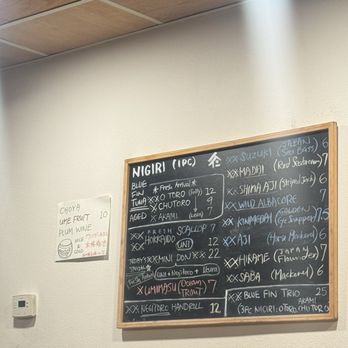 CHOYA
UME FRUIT 10
PLUM WINE
NIGIRI (1PC)
BLUE * Fresh Arrival *
FIN XXO TORO (Fatty) 12
TUNA XCHUTORO 12
AGED XAKAMI 9
XX FRESH SCALLOP 7
HOKKAIDO UNI 12
DON XX 22
(Uni + Negitoro + Ikura)
X UMIMASU (Ocean TROUT) 7
XX NEGITORO HANDROLL 12
XX SUZUKI (Sea Bass) 6
XX MADAI (Red Seabream) 7
XX SHIMA AJI (Striped Jack) 7
XX WILD ALBACORE 7
XX KINMEDAI (GOLDEN Eye Snapper) 7.5
XX AJI (Horse Mackerel) 6
XX HIRAME (Flounder) 7
XX SABA (Mackerel) 6
XX BLUE FIN TRIO 25
(3PC NIGIRI: OTORO, CHUTORO, AKAMI)